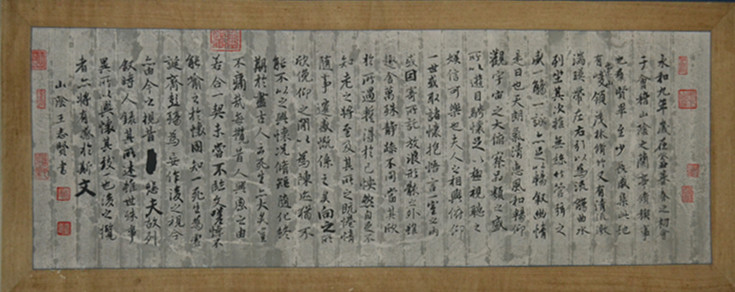 永和九年歲在癸丑暮春之初會
于會稽山陰之蘭亭脩禊事
也羣賢畢至少長咸集此地
有崇山峻領茂林脩竹又有清流激
湍暎帶左右引以為流觴曲水
列坐其次雖無絲竹管弦之
盛一觴一詠亦足以暢敘幽情
是日也天朗氣清惠風和暢仰
觀宇宙之大俯察品類之盛
所以遊目騁懷足以極視聽之
娛信可樂也夫人之相與俯仰
一世或取諸懷抱悟言一室之內
或因寄所託放浪形骸之外雖
趣舍萬殊靜躁不同當其欣
於所遇蹔得於己怏然自足不
知老之將至及其所之既惓情
隨事遷感慨係之矣向之所
欣俛仰之閒以為陳迹猶不
能不以之興懷況脩短隨化終
期於盡古人云死生亦大矣豈
不痛哉每攬昔人興感之由
若合一契未嘗不臨文嗟悼不
能喻之於懷固知一死生為虛
誕齊彭殤為妄作後之視今
亦由今之視昔悲夫故列
敘時人錄其所述雖世殊事
異所以興懷其致一也後之攬
者亦將有感於斯文
山陰王志賢書